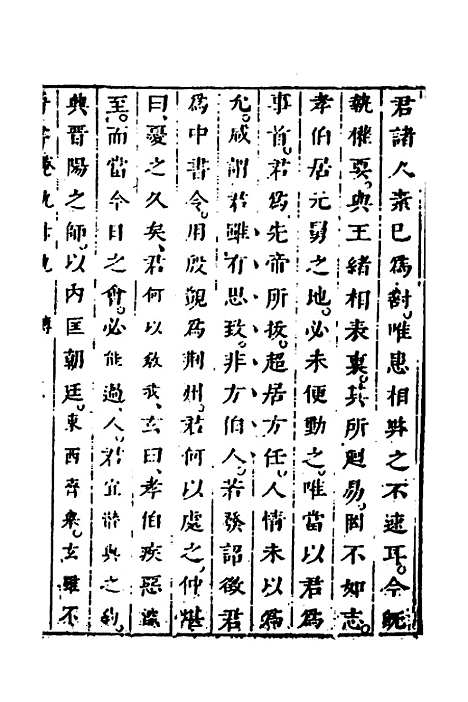 君諸人素已為對。唯患相弊之不速耳。今既
執權要。與王緒相表裏。其所迴易。罔不如志。
孝伯居元舅之地。必未便動之。唯當以君為
事首。君為先帝所拔。超居方任。人情未以為
允。咸謂君雖有思致。非方伯人。若發詔徵君
為中書令。用殷覬為荊州。君何以處之。仲堪
曰、憂之久矣、君何以教我、玄曰、孝伯疾惡深
至。而當今日之會。必能過人。君宜潛與之約。
興晉陽之師。以內匡朝廷。東西齊舉。玄雖不